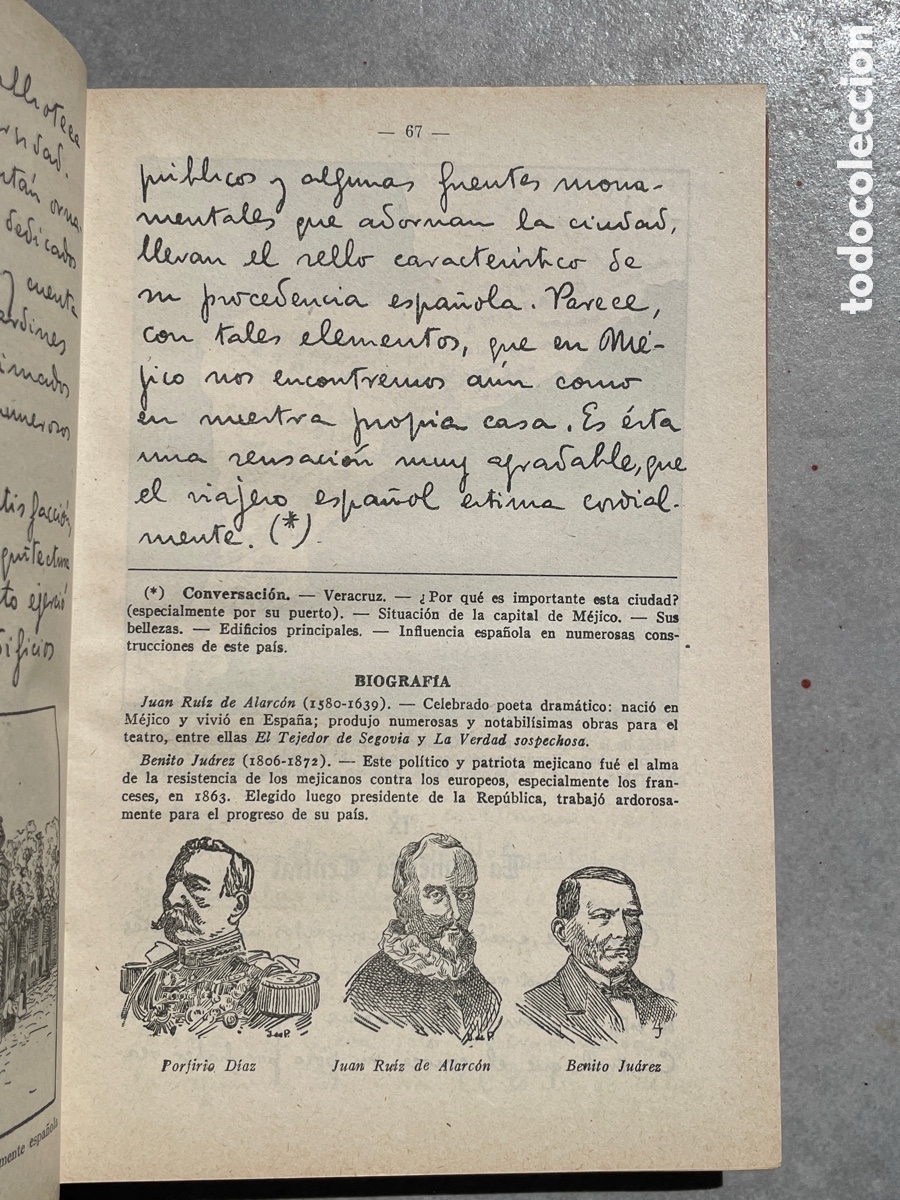 — 67 —
públicos y algunas fuentes monu-
mentales que adornan la ciudad,
llevan el sello característico de
su procedencia española. Parece,
con tales elementos, que en Mé-
jico nos encontremos aún como
en nuestra propia casa. Es ésta
una sensación muy agradable, que
el viajero español estima cordial-
mente. (*)
(*) Conversación. — Veracruz. — ¿Por qué es importante esta ciudad?
(especialmente por su puerto). — Situación de la capital de Méjico. — Sus
bellezas. — Edificios principales. — Influencia española en numerosas cons-
trucciones de este país.
BIOGRAFÍA
Juan Ruíz de Alarcón (1580-1639). — Celebrado poeta dramático: nació en
Méjico y vivió en España; produjo numerosas y notabilísimas obras para el
teatro, entre ellas El Tejedor de Segovia y La Verdad sospechosa.
Benito Juárez (1806-1872). — Este político y patriota mejicano fué el alma
de la resistencia de los mejicanos contra los europeos, especialmente los fran-
ceses, en 1863. Elegido luego presidente de la República, trabajó ardorosa-
mente para el progreso de su país.
Porfirio Díaz
Juan Ruíz de Alarcón
Benito Juárez
dedicados
y cuenta
numerosos
ejerció
mente española
todocoleccion